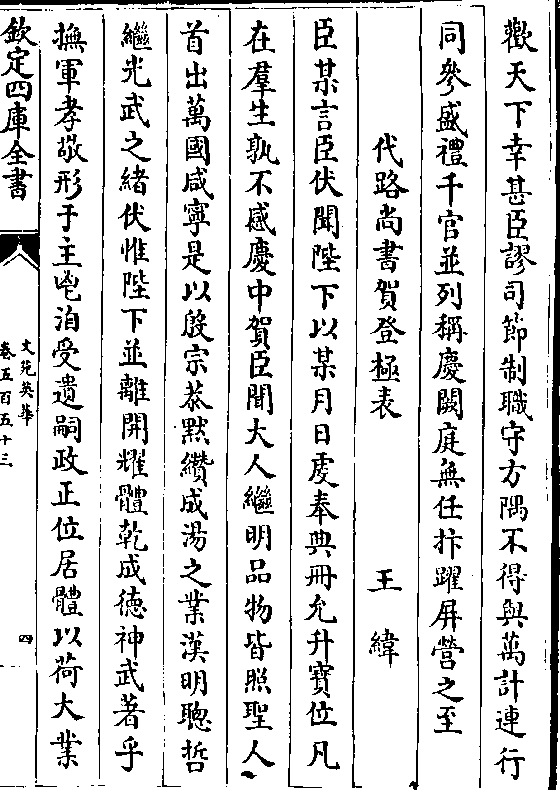 歡天下幸甚臣謬司節制職守方隅不得與萬計連行
同參盛禮千官並列稱慶闕庭無任抃躍屏營之至
代路尚書賀登極表 王緯
臣某言臣伏聞陛下以某月日虔奉典冊允升寶位凡
在羣生孰不感慶中賀臣聞大人繼明品物皆照聖人
首出萬國咸寧是以殷宗恭默纘成湯之業漢明聰哲
繼光武之緒伏惟陛下並離開耀體乾成德神武著乎
撫軍孝敬形于主鬯洎受遺嗣政正位居體以荷大業
欽定四庫全書
文苑英華
卷五百五十三
四